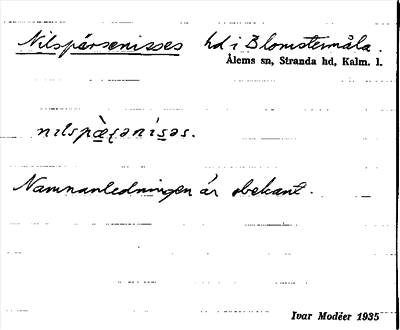 Nilspärsenisses hd i Blomstermåla.
Ålems sn, Stranda hd, Kalm. l.
Namnanledningen är obekant.
Ivar Modéer 1935